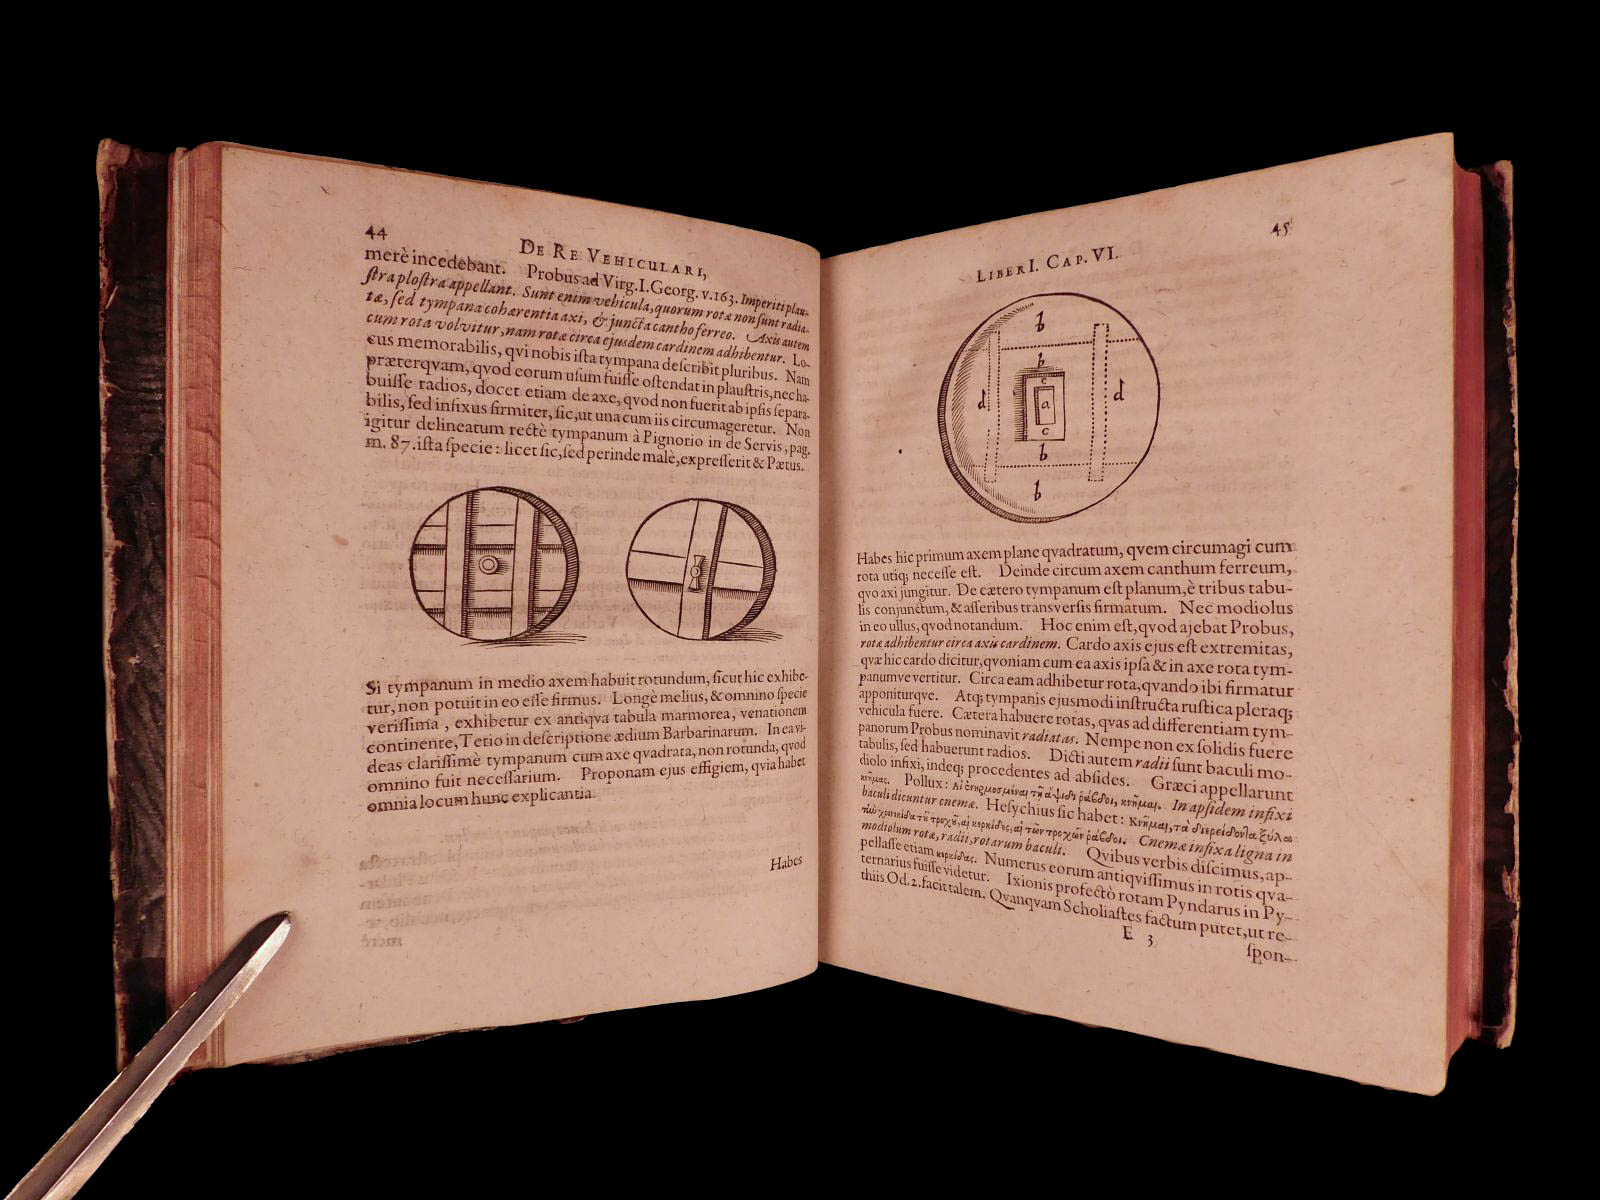 44
DE RE VEHICULARI,
merè incedebant. Probus ad Virg. I. Georg. v. 163. Imperiti plau-
ſtra ploſtra appellant. Sunt enim vehicula, quorum rotæ non ſunt radia-
tæ, ſed tympana cohærentia axi, & juncta cantho ferreo. Axis autem
cum rota volvitur, nam rotæ circa ejusdem cardinem adhibentur. Lo-
cus memorabilis, qvi nobis iſta tympana deſcribit pluribus. Nam
præterqvam, qvod eorum uſum fuiſſe oſtendat in plauſtris, nec ha-
buiſſe radios, docet etiam de axe, qvod non fuerit ab ipſis ſepara-
bilis, ſed infixus firmiter, ſic, ut una cum iis circumageretur. Non
igitur delineatum rectè tympanum à Pignorio in de Servis, pag.
m. 87. iſta ſpecie: licet ſic, ſed perinde malè, expreſſerit & Pætus.
Si tympanum in medio axem habuit rotundum, ſicut hic exhibe-
tur, non potuit in eo eſſe firmus. Longè melius, & omnino ſpecie
veriſſima, exhibetur ex antiqva tabula marmorea, venationem
continente, Tetio in deſcriptione ædium Barbarinarum. In ea vi-
deas clariſſimè tympanum cum axe qvadrata, non rotunda, qvod
omnino fuit neceſſarium. Proponam ejus effigiem, qvia habet
omnia locum hunc explicantia.
Habes
LIBER I. CAP. VI.
45
b
b
c
d
a
d
c
b
b
Habes hic primum axem plane qvadratum, qvem circumagi cum
rota utiq; neceſſe eſt. Deinde circum axem canthum ferreum,
qvo axi jungitur. De cætero tympanum eſt planum, è tribus tabu-
lis conjunctum, & aſſeribus transverſis firmatum. Nec modiolus
in eo ullus, qvod notandum. Hoc enim eſt, qvod ajebat Probus,
rotæ adhibentur circa axis cardinem. Cardo axis ejus eſt extremitas,
qvæ hic cardo dicitur, qvoniam cum ea axis ipſa & in axe rota tym-
panumve vertitur. Circa eam adhibetur rota, qvando ibi firmatur
apponiturqve. Atq; tympanis ejusmodi inſtructa ruſtica pleraq;
vehicula fuere. Cætera habuere rotas, qvas ad differentiam tym-
panorum Probus nominavit radiatas. Nempe non ex ſolidis fuere
tabulis, ſed habuerunt radios. Dicti autem radii ſunt baculi mo-
diolo infixi, indeq; procedentes ad abſides. Græci appellarunt
κνήμας. Pollux: Αἱ ἐνηρμοσμέναι τῇ ἁψῖδι ῥάβδοι, κνῆμαι. In apſidem infixi
baculi dicuntur cnemæ. Heſychius ſic habet: Κνῆμαι, τὰ διερείδοντα ξύλα
τὴν χοινικίδα τοῦ τροχοῦ, αἱ κερκίδες, αἱ τῶν τροχῶν ῥάβδοι. Cnemæ infixa ligna in
modiolum rotæ, radii, rotarum baculi. Qvibus verbis diſcimus, ap-
pellaſſe etiam κερκίδας. Numerus eorum antiqviſſimus in rotis qva-
ternarius fuiſſe videtur. Ixionis profectò rotam Pyndarus in Py-
thiis Od. 2. facit talem. Qvanqvam Scholiaſtes factum putet, ut re-
E 3
ſpon-